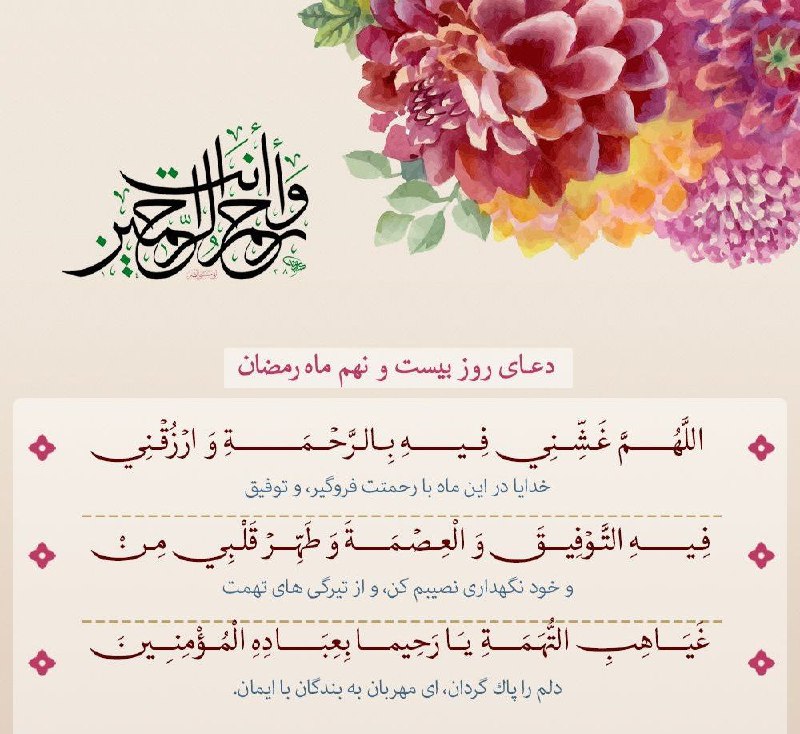 وَأَنتَ أَرحَمُ الرّاحِمین
دعـای روز بیست و نهم ماه رمضان
اللَّهُمَّ غَشِّنِي فِيهِ بِالرَّحْمَةِ وَ ارْزُقْنِي
خدایا در این ماه با رحمتت فروگیر، و توفیق
فِيهِ التَّوْفِيقَ وَ الْعِصْمَةَ وَ طَهِّرْ قَلْبِي مِنْ
و خود نگهداری نصیبم کن، و از تیرگی های تهمت
غَيَاهِبِ التُّهَمَةِ يَا رَحِيما بِعِبَادِهِ الْمُؤْمِنِينَ
دلم را پاك گردان، ای مهربان به بندگان با ایمان.